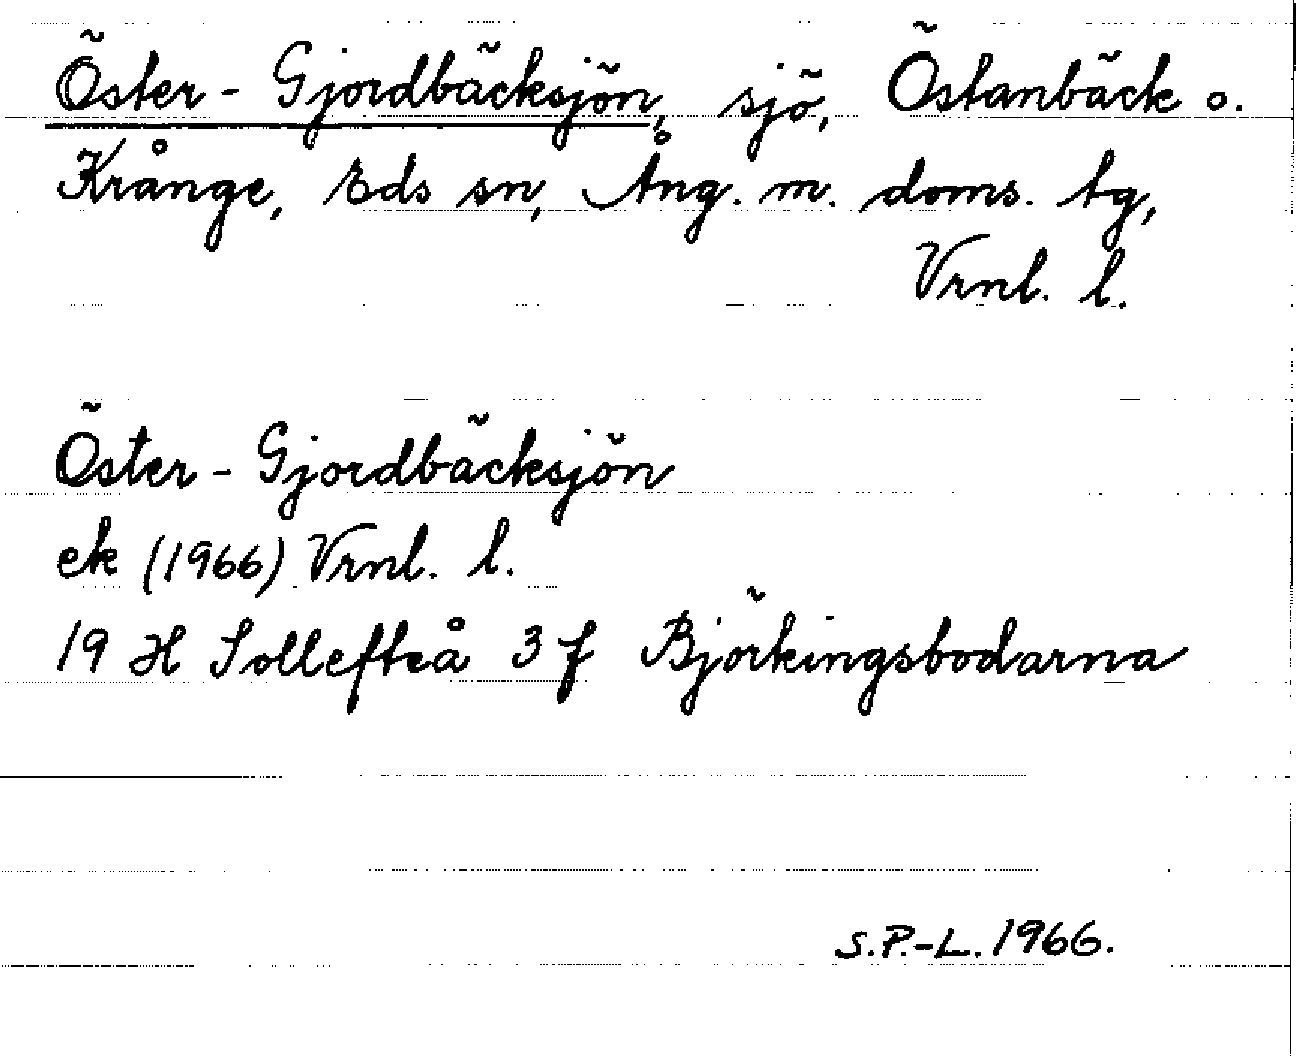 Öster-Gjordbäcksjön, sjö, Östanbäck o.
Krånge, Eds sn, Ång. m. doms. tg,
Vrnl. l.
Öster-Gjordbäcksjön
ek (1966) Vrnl. l.
19 H Sollefteå 3 f Björkingsbodarna
S.P.-L. 1966.